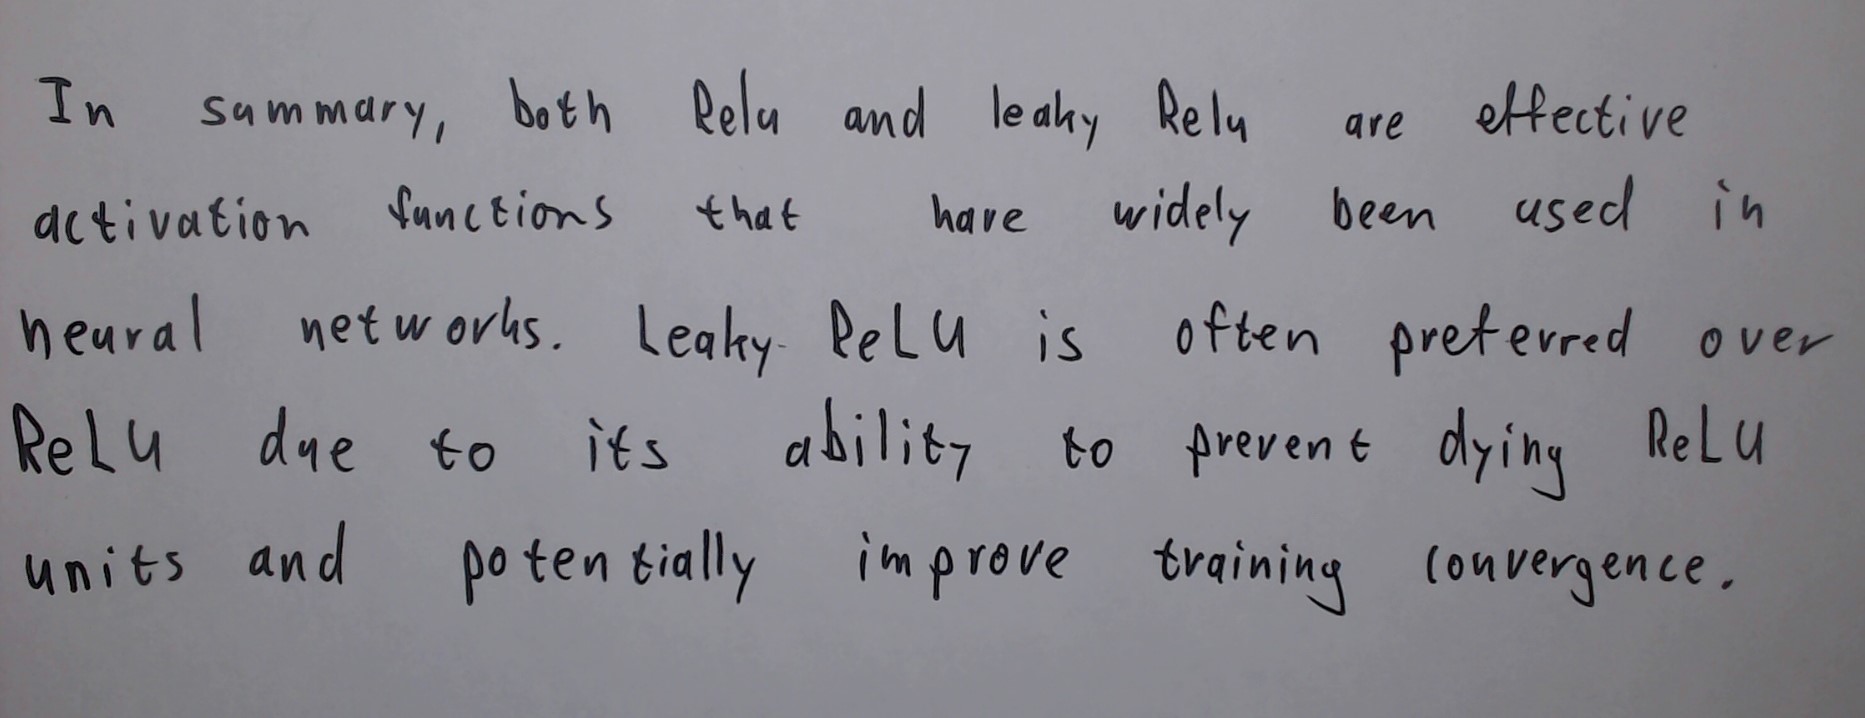 In summary, both Relu and leaky Relu are effective
activation functions that have widely been used in
neural networks. Leaky ReLU is often preferred over
ReLU due to its ability to prevent dying ReLU
units and potentially improve training convergence.